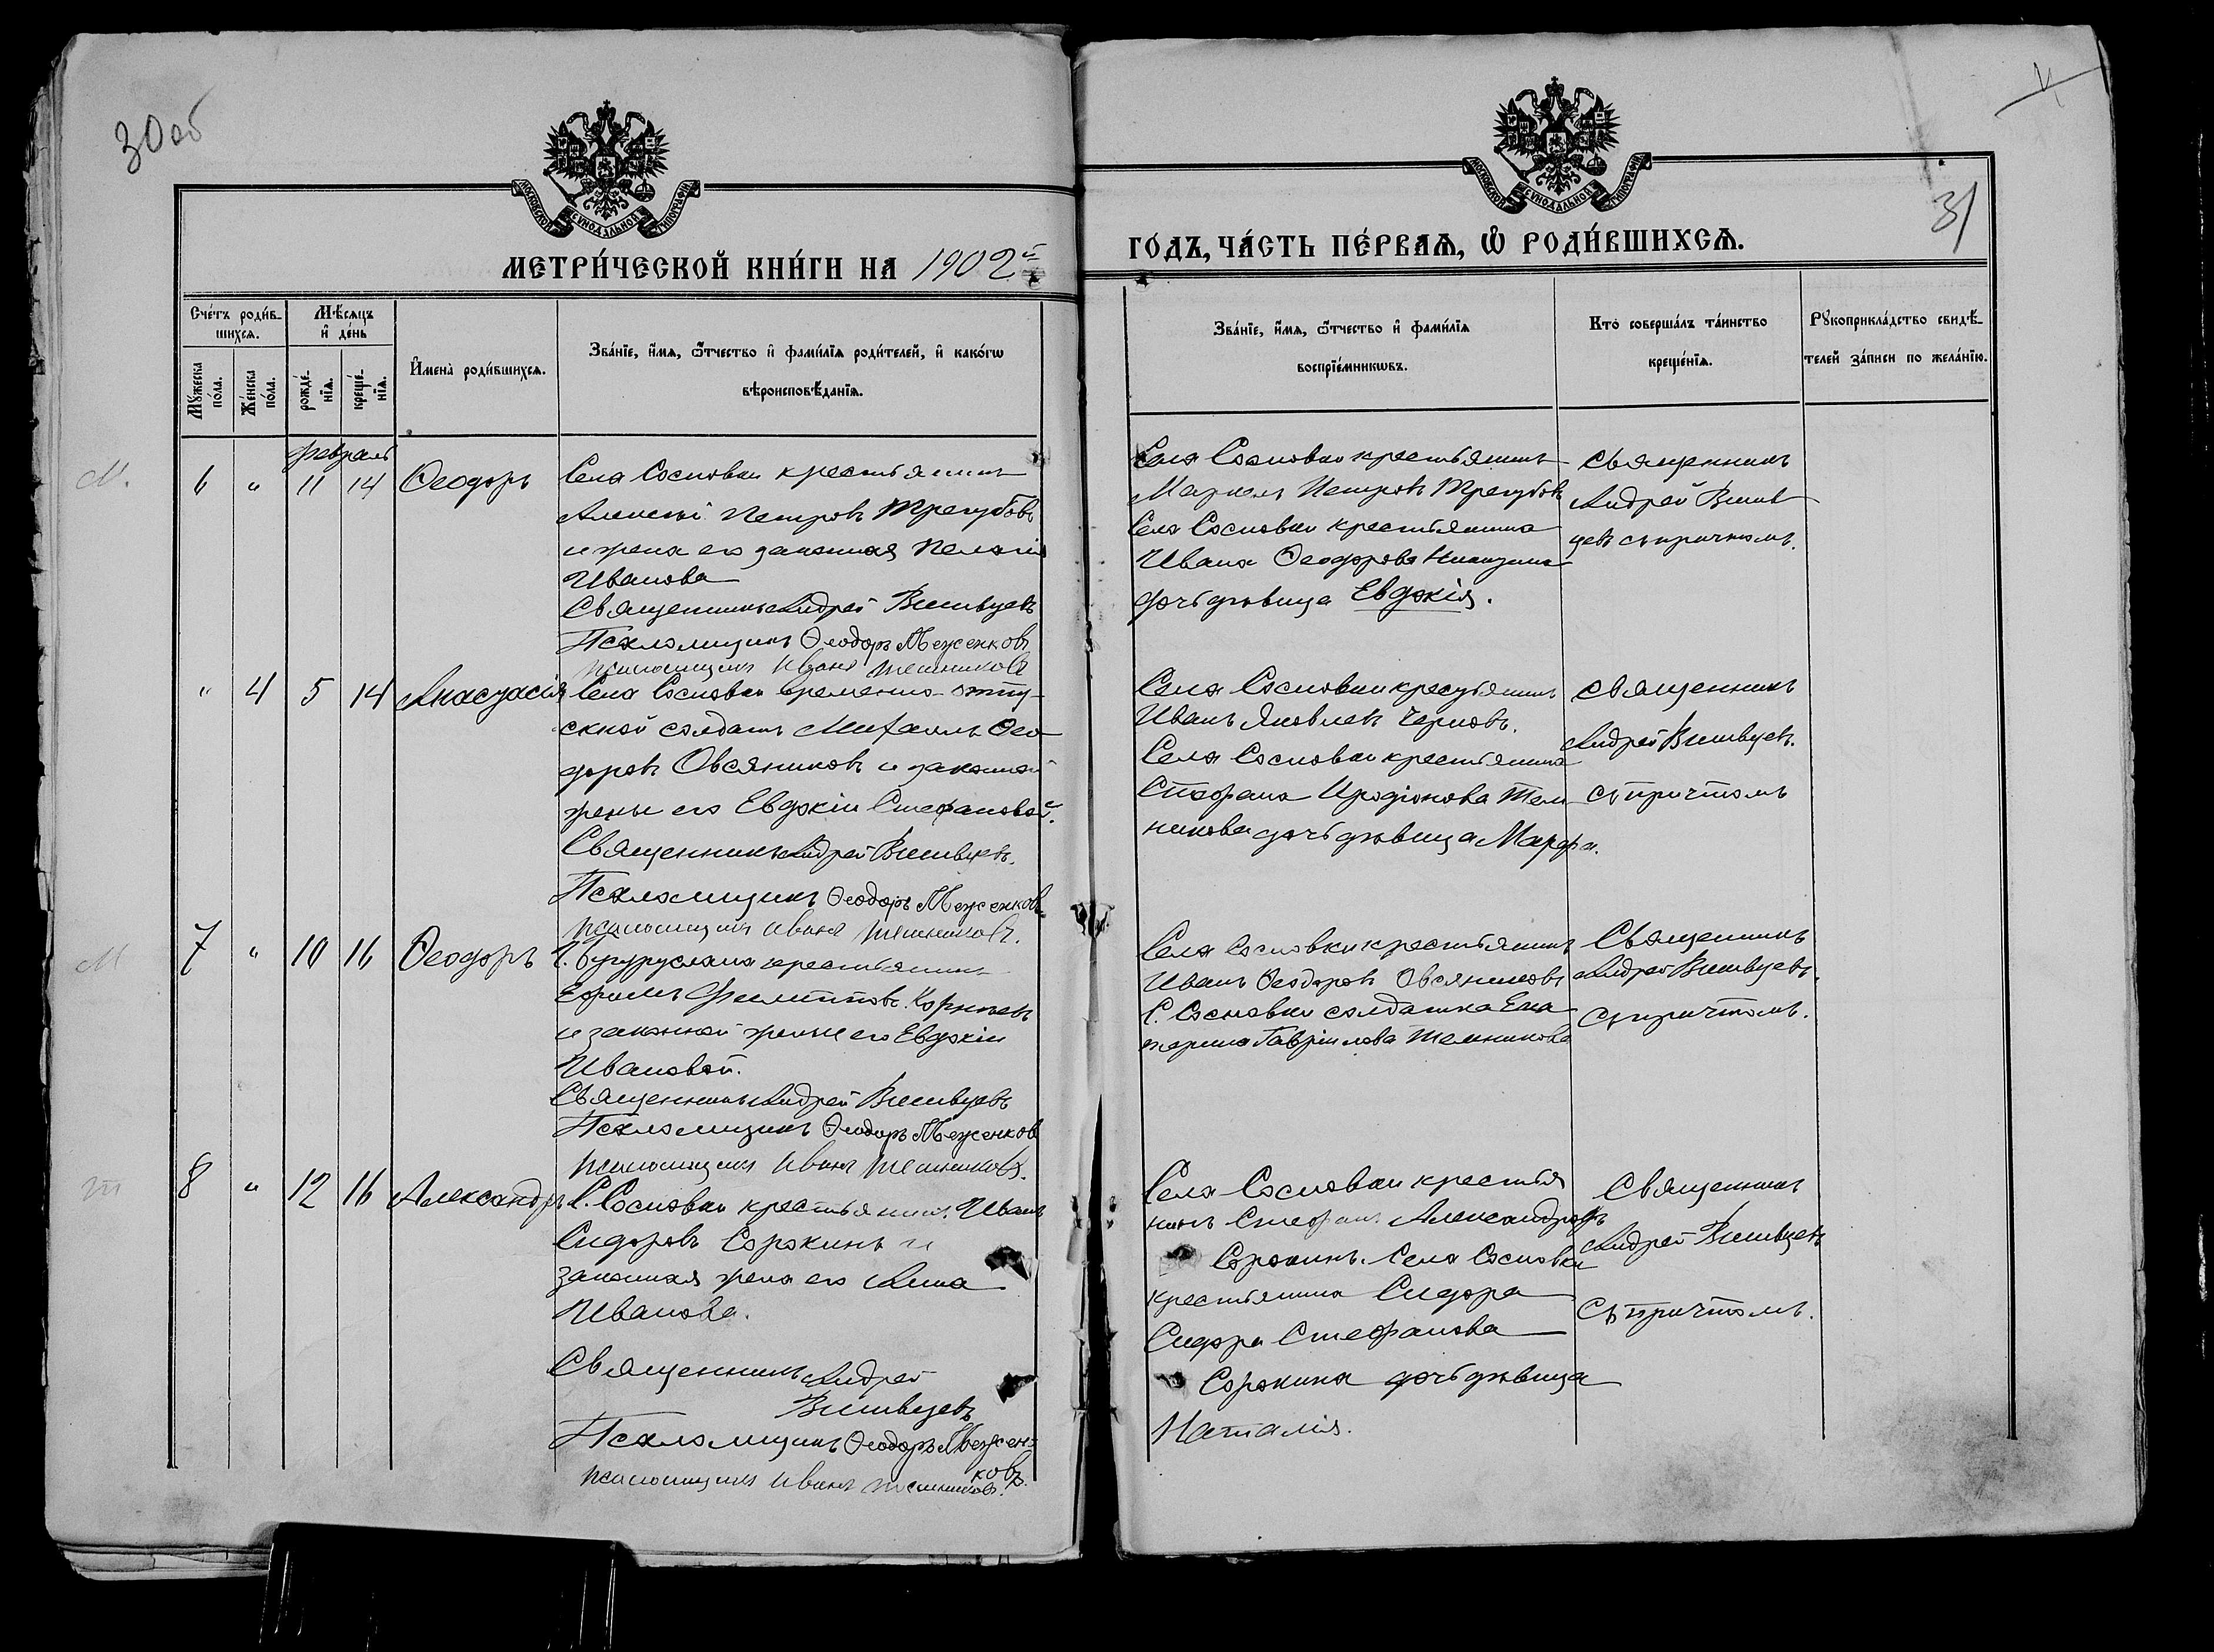 30об
МОСКОВСКОЙ СѴНОДАЛЬНОЙ ТИПОГРАФІИ
МЕТРИ́ЧЕСКОЙ КНИ́ГИ НА 1902й
Сче́тъ роди́в-
шихсѧ.
Мѣ́сѧцъ
и҆ де́нь
Мꙋ́жеска
по́ла.
Же́нска
по́ла.
рожде́-
нїѧ.
креще́-
нїѧ.
И҆мена̀ роди́вшихсѧ.
Зва́нїе, и҆́мѧ, ѻ҆́тчество и҆ фами́лїѧ роди́телей, и҆ како́гѡ
вѣроисповѣ́данїѧ.
февраль
М. 6 " 11 14 Ѳеодоръ Села Сосновки крестьянинъ
Алексѣй Петровъ Трегубовъ
и жена его законная Пелагія
Иванова
Священникъ Андрей
Псаломщикъ Ѳеодоръ Меженковъ
псаломщикъ Иванъ
" 4 5 14 Анастасія Села Сосновки временно-отпу-
скной солдатъ Михаилъ Ѳео-
доровъ Овсяниковъ и законной
жены его Евдокіи Стефановой.
Священникъ Андрей
Псаломщикъ Ѳеодоръ Меженковъ
псаломщикъ Иванъ
М 7 " 10 16 Ѳеодоръ Г. Бугуруслана крестьянинъ
Ефимъ Филипповъ Корнѣевъ
и законной жены его Евдокіи
Ивановой.
Священникъ Андрей
Псаломщикъ Ѳеодоръ Меженковъ
псаломщикъ Иванъ
т 8 " 12 16 Александръ С. Сосновки крестьянинъ Иванъ
Сидоровъ Сорокинъ и
законная жена его Анна
Иванова.
Священникъ Андрей
Псаломщикъ Ѳеодоръ Межен-
ковъ.
псаломщикъ Иванъ
31
МОСКОВСКОЙ СѴНОДАЛЬНОЙ ТИПОГРАФІИ
ГО́ДЪ, ЧА́СТЬ ПЕ́РВАѦ, Ѽ РОДИ́ВШИХСѦ.
Зва́нїе, и҆́мѧ, ѻ҆́тчество и҆ фами́лїѧ
воспрїе́мникѡвъ.
Кто̀ соверша́лъ та́инство
креще́нїѧ.
Рꙋкоприкла́дство свидѣ́-
телей за́писи по жела́нїю.
Села Сосновки крестьянинъ
Петровъ Трегубовъ
Села Сосновки крестьянина
Ивана Ѳеодорова
дочь дѣвица Евдокія.
Священникъ
Андрей
съ причтомъ.
Села Сосновки крестьянинъ
Иванъ Яковлевъ Черновъ.
Села Сосновки крестьянина
Стефана Иродіонова Тем-
никова дочь дѣвица Марфа.
Священникъ
Андрей
съ причтомъ
Села Сосновки крестьянинъ
Иванъ Ѳеодоровъ Овсяниковъ
С. Сосновки солдатка Ека-
терина Гавріилова Темникова
Священникъ
Андрей
съ причтомъ.
Села Сосновки крестья
нинъ Стефанъ Александровъ
Сорокинъ. Села Сосновки
крестьянина Сидора
Сидора Стефанова
Сорокина дочь дѣвица
Наталія.
Священникъ
Андрей
съ причтомъ.